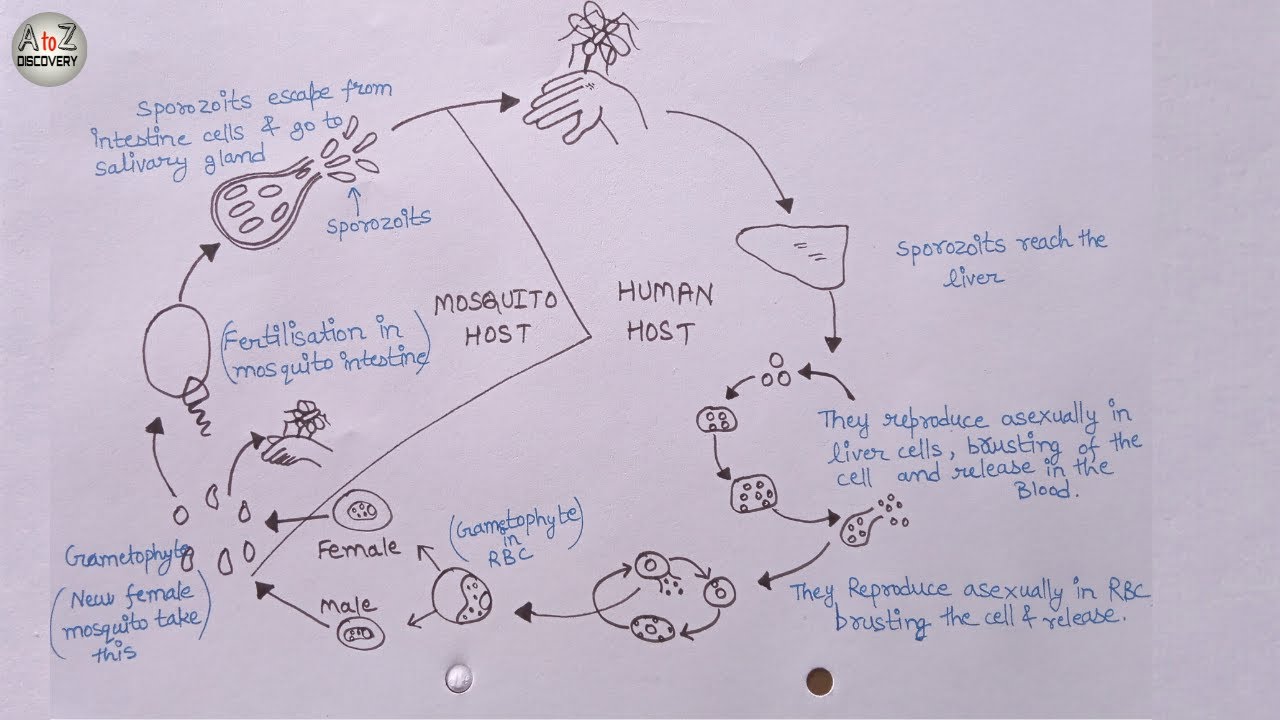 A to Z
DISCOVERY
Sporozoits escape from
intestine cells & go to
salivary gland
Sporozoits
MOSQUITO
HOST
HUMAN
HOST
Sporozoits reach the
liver
(Fertilisation in
mosquito intestine)
They reproduce asexually in
liver cells, brusting of the
cell and release in the
Blood.
They Reproduce asexually in RBC
brusting the cell & release.
(Gametophyte
in
RBC)
Female
Male
Gametophyte
(New female
mosquito take
this)